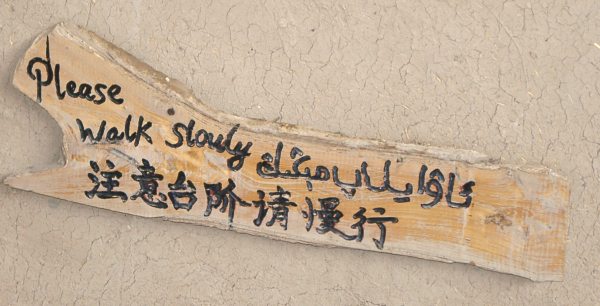 Please
Walk slowly ئاۋايلاپ مېڭىڭ
注意台阶请慢行